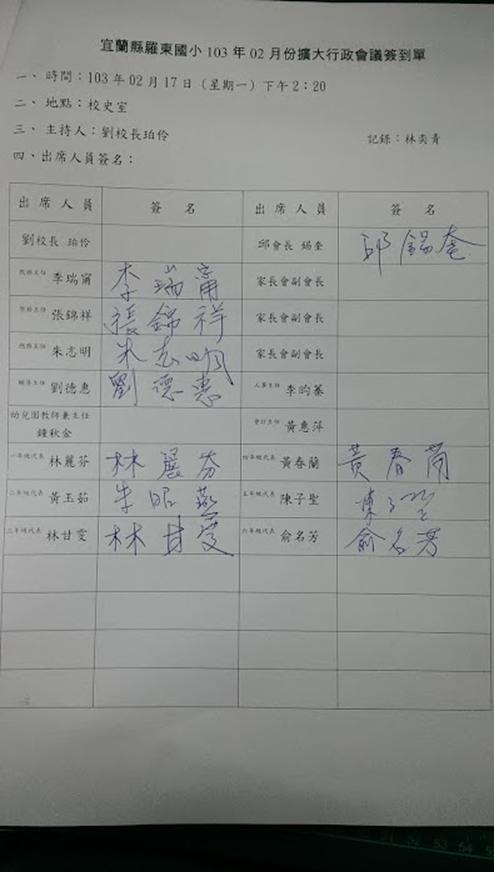 宜蘭縣羅東國小103年02月份擴大行政會議簽到單
一、時間：103年02月17日（星期一）下午2：20
二、地點：校史室
三、主持人：劉校長珀伶 記錄：林奕青
四、出席人員簽名：
出席人員 簽名 出席人員 簽名
劉校長 珀伶 邱會長 錫奎 邱錫奎
教務主任 李瑞甯 李瑞甯 家長會副會長
張錦祥 張錦祥 家長會副會長
總務主任 朱志明 朱志明 家長會副會長
輔導主任 劉德惠 劉德惠 人事主任 李昀蓁
幼兒園教師兼主任 會計主任 黃惠萍
鐘秋金
一年級代表 林麗芬 林麗芬 四年級代表 黃春蘭 黃春蘭
二年級代表 黃玉茹 朱昭燕 五年級代表 陳子聖 陳子聖
三年級代表 林甘雯 林甘雯 六年級代表 俞名芳 俞名芳